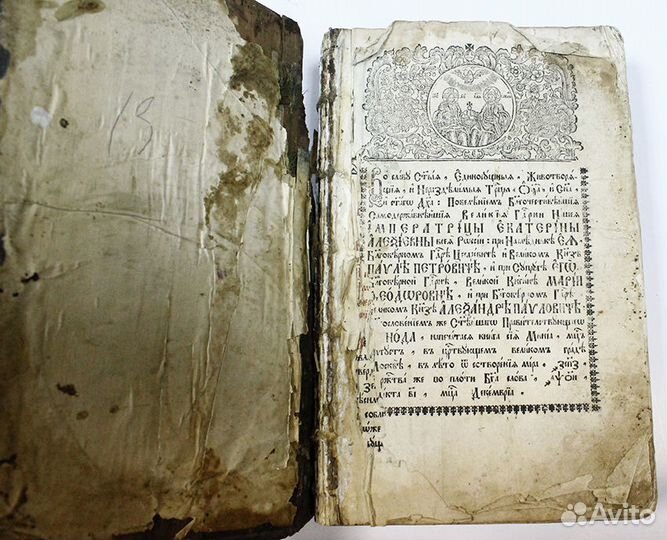 13
Во славу Ст҃ыѧ, Единосущныѧ, Животворѧ-
щїѧ, и Нераздѣлимыѧ Трⷪ҇цы, Ѻ҃ца, и Сн҃а,
и ст҃агѡ Дх҃а: Повелѣнїемъ Бл҃гочестивѣйшїѧ
Самодержавнѣйшїѧ Великїѧ Гдⷭ҇рни Нашеѧ
ИМПЕРАТРИЦЫ ЕКАТЕРИНЫ
АЛЕѮЕВНЫ всеѧ Россїи: при Наслѣдникѣ ЕѦ
Бл҃говѣрномъ Гдⷭ҇рѣ Цесаревичѣ и Великомъ Кн҃зѣ
ПАѴЛѢ ПЕТРОВИЧѢ, и при Сꙋпрꙋгѣ ЕГѠ
Бл҃говѣрной Гдⷭ҇рнѣ, Великой Кнѧгинѣ МАРІИ
ѲЕОДѠРОВНѢ, и при Бл҃говѣрномъ Гдⷭ҇рѣ
Великомъ Кн҃зѣ АЛЕѮАНДРѢ ПАѴЛОВИЧѢ
Бл҃гословенїемъ же Ст҃ѣйшагѡ Правителствꙋющагѡ
СѴНОДА, напечатасѧ книга сїѧ Минїа, мцⷭ҇ъ
Аѵгꙋстъ, въ црⷭ҇твꙋющемъ великомъ градѣ
Москвѣ, въ лѣто ѿ сотворенїѧ мїра,
Ржⷭ҇тва же по плоти Бг҃а слова,
індїкта в҃і, мцⷭ҇а Декемврїа.
Avito